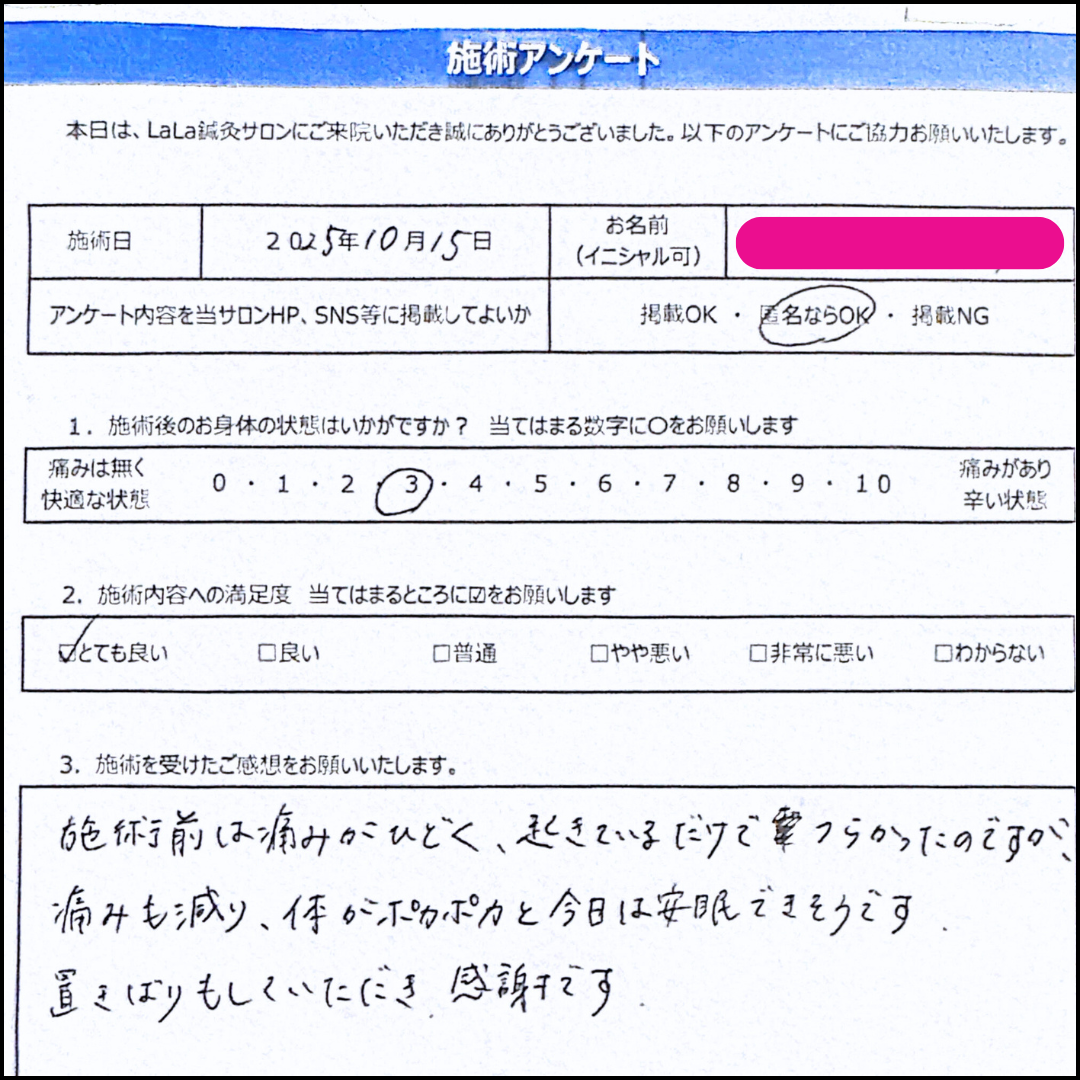 施術アンケート
本日は、LaLa鍼灸サロンにご来院いただき誠にありがとうございました。以下のアンケートにご協力お願いいたします。
施術日 2025年10月15日 お名前
(イニシャル可)
アンケート内容を当サロンHP、SNS等に掲載してよいか 掲載OK ・ 匿名ならOK ・ 掲載NG
1. 施術後のお身体の状態はいかがですか？ 当てはまる数字に〇をお願いします
痛みは無く
快適な状態
0 ・ 1 ・ 2 ・ 3 ・ 4 ・ 5 ・ 6 ・ 7 ・ 8 ・ 9 ・ 10
痛みがあり
辛い状態
2. 施術内容への満足度 当てはまるところに☑をお願いします
☑とても良い □良い □普通 □やや悪い □非常に悪い □わからない
3. 施術を受けたご感想をお願いいたします。
施術前は痛みがひどく、起きているだけでつらかったのですが、
痛みも減り、体がポカポカと今日は安眠できそうです.
置きばりもしていただき.感謝です.